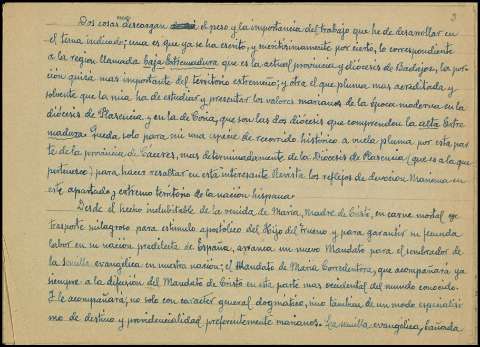 3
Dos cosas me descargan el peso y la importancia del trabajo que he de desarrollar en
el tema indicado; una es que ya se ha escrito, y meritísimamente por cierto, lo correspondiente
a la region llamada baja Extremadura que es la actual provincia y diócesis de Badajoz, la por-
ción quizá mas importante del territorio extremeño; y otra el que pluma mas acreditada y
solvente que la mia, ha de estudiar y presentar los valores marianos de la época moderna en la
diócesis de Plasencia y en la de Coria, que son las dos diócesis que comprenden la alta Extre-
madura. Queda solo para mi una especie de recorrido histórico a vuela pluma por esta par-
te de la provincia de Cáceres, mas determinadamente de la Diócesis de Plasencia (que es a la que
pertenezco) para hacer resaltar en esta interesante Revista los reflejos de devoción Mariana en
este apartado y extremo territorio de la nación hispana.
Desde el hecho indubitable de la venida de Maria, Madre de Cristo, en carne mortal y
trasporte milagroso para estimulo apostólico del Hijo del trueno y para garantir su fecunda
labor en su nación predilecta de España, arranca un nuevo Mandato para el sembrador de
la semilla evangélica en nuestra nación; el Mandato de Maria Corredentora, que acompañará ya
siempre a la difusion del Mandato de Cristo en esta parte mas occidental del mundo conocido.
Y le acompañará, no solo con carácter general dogmatico, sino tambien de un modo especialisi-
mo de destino y providencialidad preferentemente marianos. La semilla evangélica, bañada